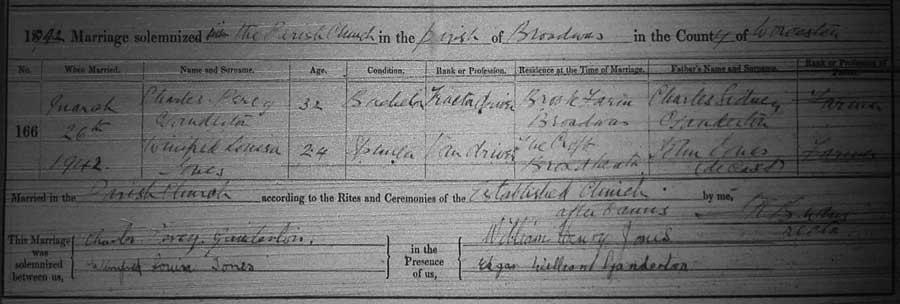 1842 Marriage solemnized in the Parish Church in the parish of Broadwas in the County of Worcester
No. When Married. Name and Surname. Age. Condition. Rank or Profession. Residence at the Time of Marriage. Father's Name and Surname. Rank or Profession of Father.
166
March 26th 1942
Charles Percy Ganderton 32 Bachelor Tractor driver Brook Farm Broadwas Charles Sidney Ganderton Farmer
Winifred Louisa Jones 24 Spinster Van driver The Croft Broadheath John Jones (decasd) Farmer
Married in the Parish Church according to the Rites and Ceremonies of the Established Church after Banns by me,
This Marriage was solemnized between us,
Charles Percy Ganderton.
Winifred Louisa Jones
in the Presence of us,
William Henry Jones
Edgar William Ganderton